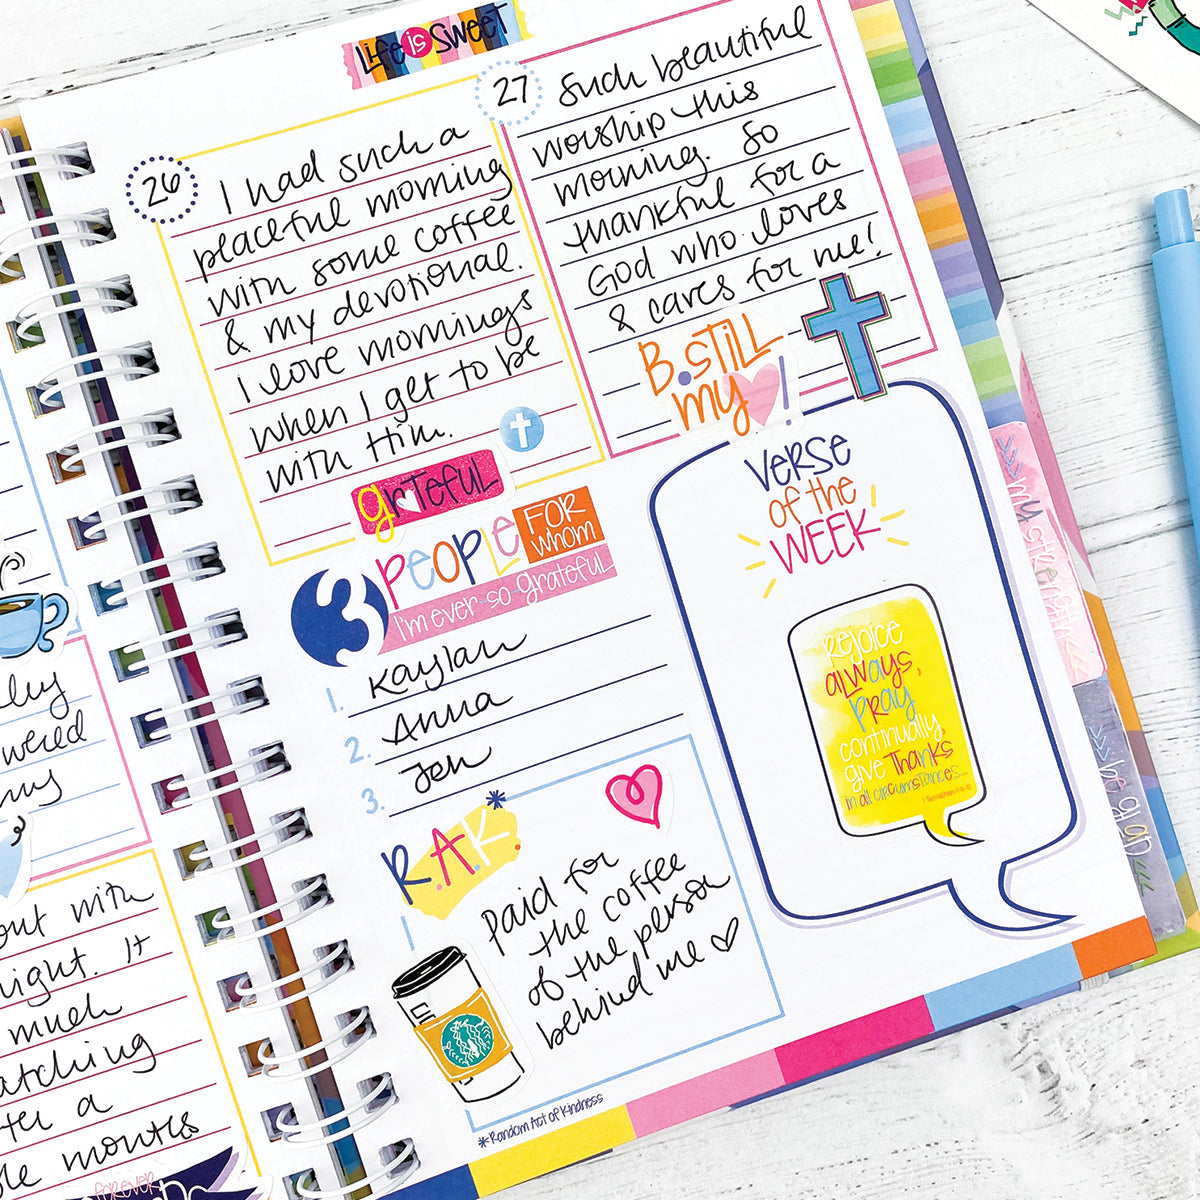 Life is Sweet
26
I had such a
peaceful morning
with some coffee
& my devotional.
I love mornings
when I get to be
with Him.
grateful
27
Such beautiful
worship this
morning. So
thankful for a
God who loves
& cares for me!
B. Still
my !
3 People for
whom
I'm ever so grateful
1. Kaylan
2. Anna
3. Jen
R.A.K.*
Paid for
the coffee
of the person
behind me
*Random Act of Kindness
Verse
of the
Week
Rejoice
always,
Pray
continually
give Thanks
in all circumstances...
my strength
out with
night. It
much
a
months
forever